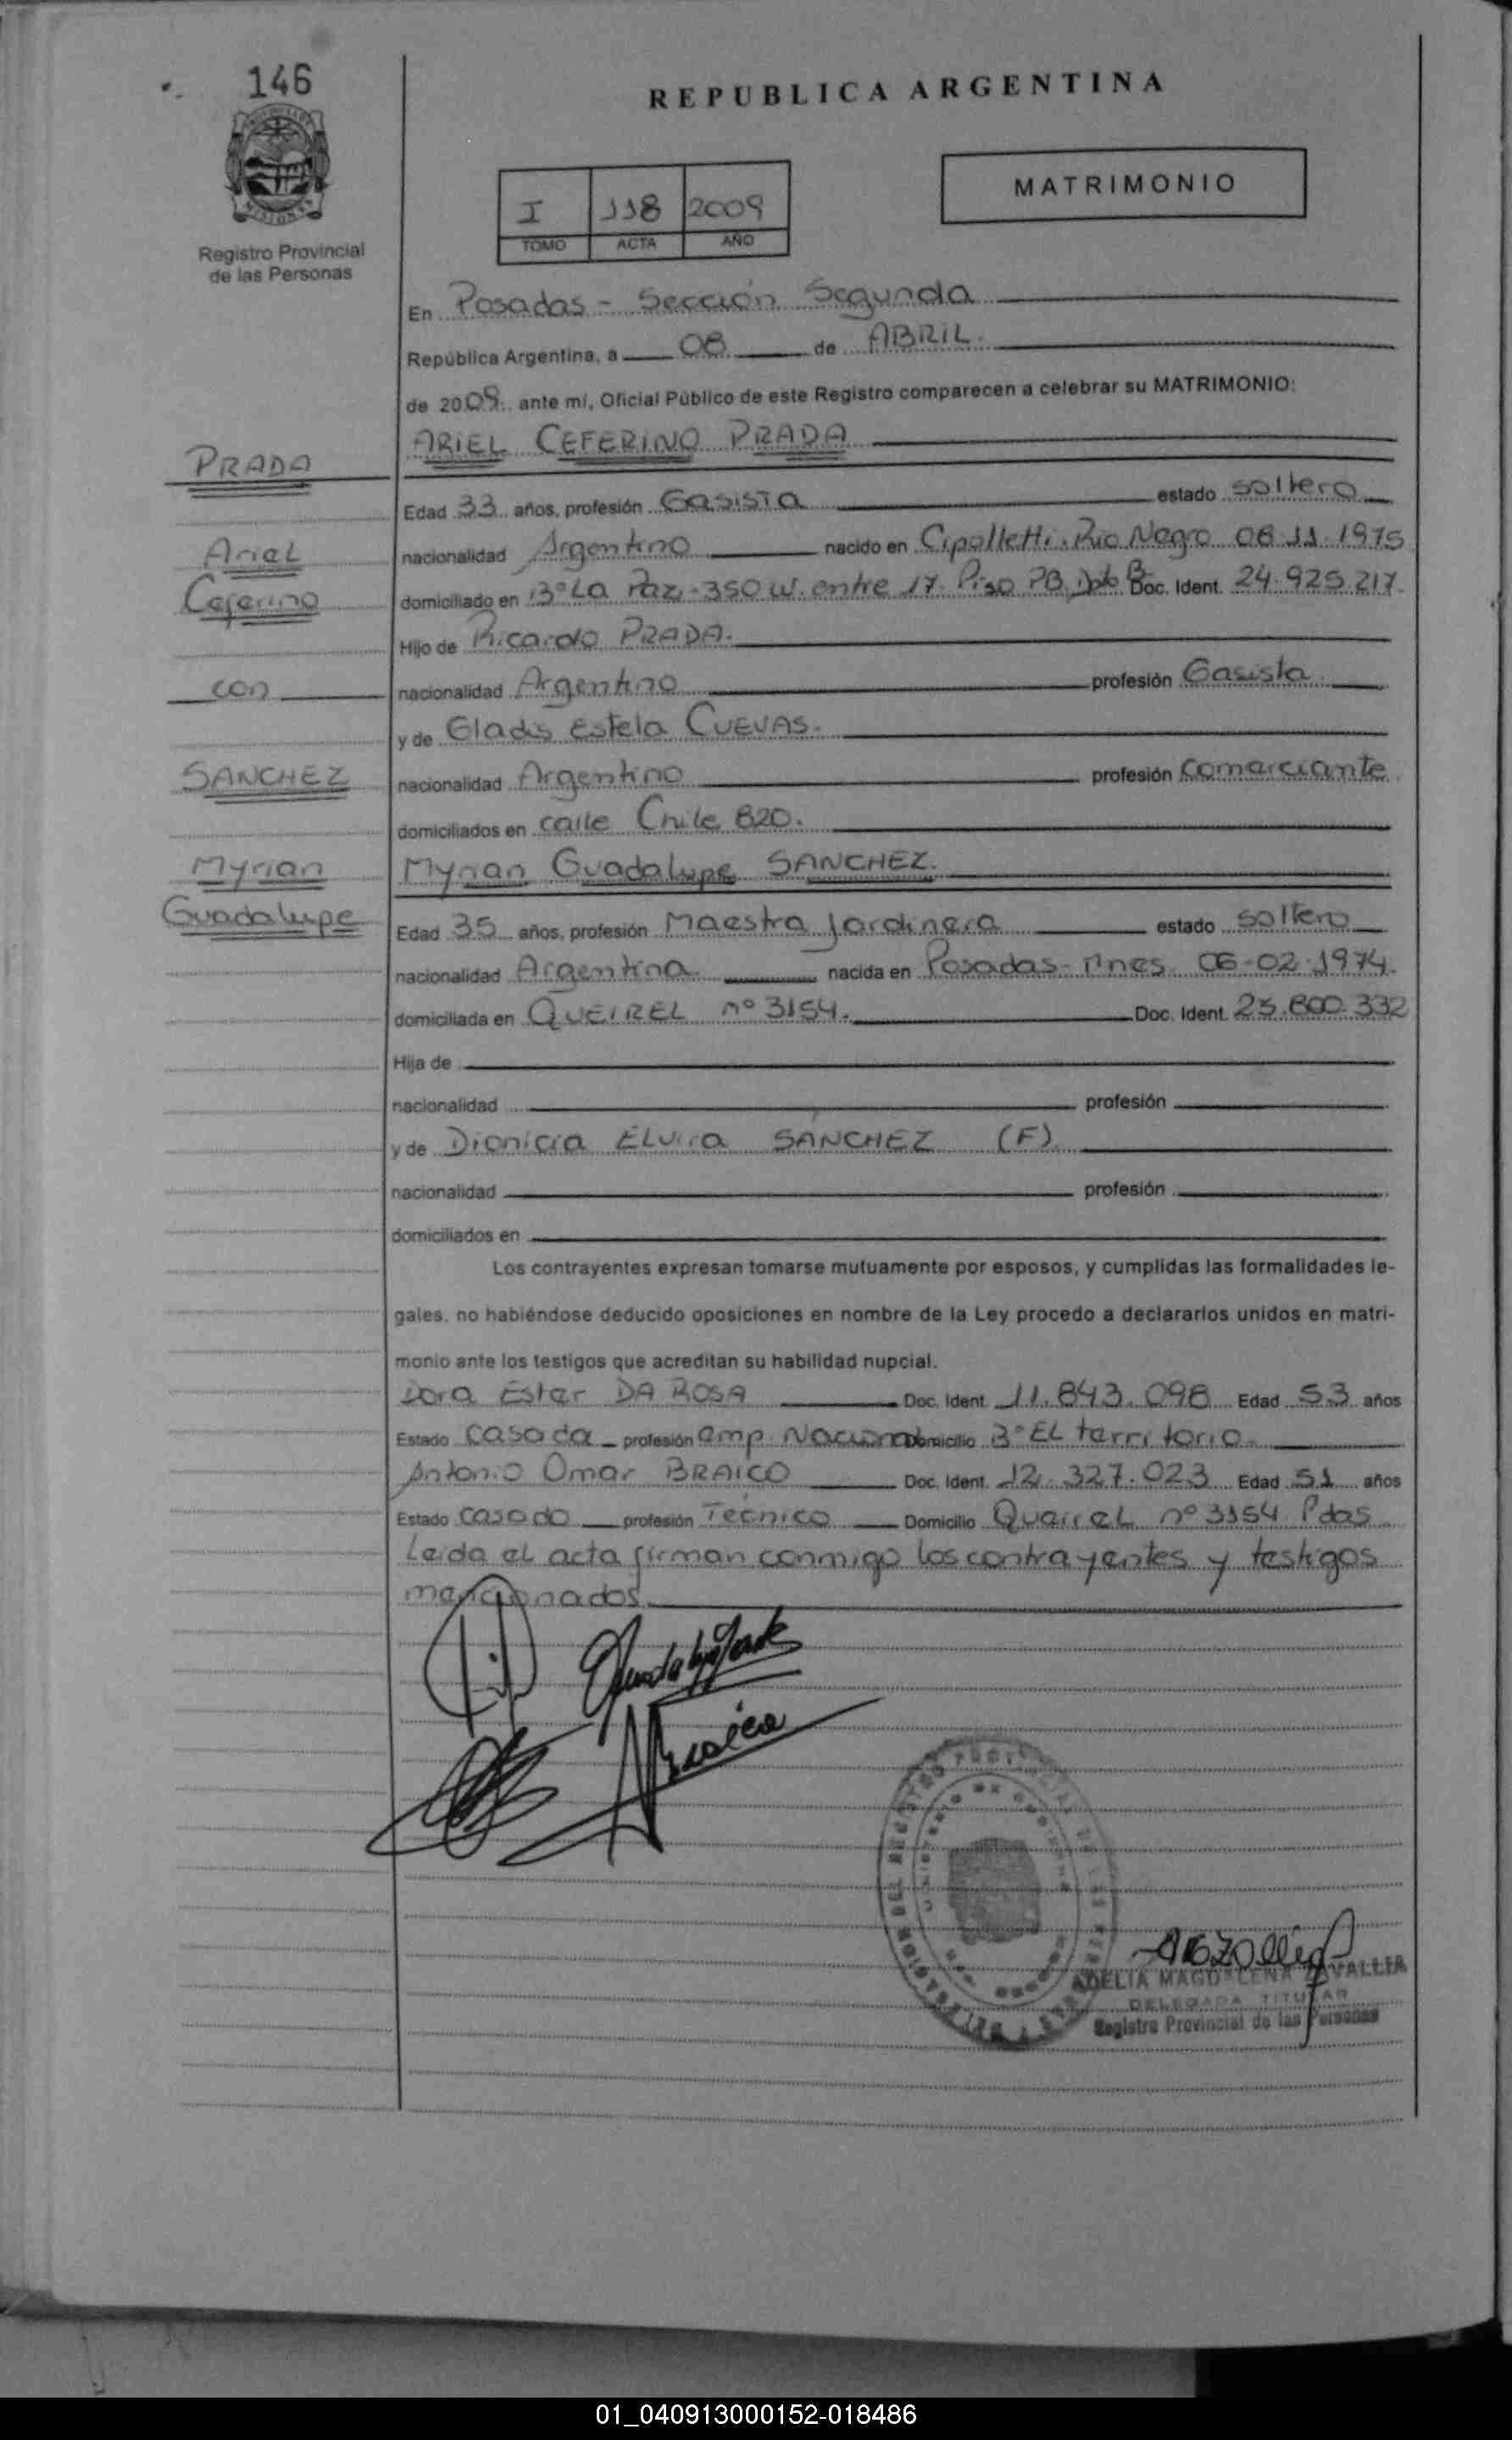 146
REPUBLICA ARGENTINA
MATRIMONIO
I 118 2009
TOMO ACTA AÑO
Registro Provincial
de las Personas
En Posadas - Sección Segunda
República Argentina, a 08 de ABRIL.
de 2009. ante mí, Oficial Público de este Registro comparecen a celebrar su MATRIMONIO:
ARIEL CEFERINO PRADA
PRADA
Edad 33 años, profesión Gasista estado soltero
Ariel
nacionalidad Argentino nacido en Cipolletti. Río Negro 08.11.1975
Ceferino
domiciliado en B° La Paz - 350 W. entre 17. Piso PB, Dpto B Doc. Ident. 24.925.217
Hijo de Ricardo PRADA.
con
nacionalidad Argentino profesión Gasista
y de Gladis Estela CUEVAS.
SANCHEZ
nacionalidad Argentino profesión Comerciante
domiciliados en calle Chile 820.
Myrian
Myrian Guadalupe SANCHEZ.
Guadalupe
Edad 35 años, profesión Maestra Jardinera estado soltero
nacionalidad Argentina nacida en Posadas - Mnes 06-02-1974.
domiciliada en QUEIREL n° 3154. Doc. Ident. 23.800.332
Hija de
nacionalidad profesión
y de Dionicia Elvira SANCHEZ (F)
nacionalidad profesión
domiciliados en
Los contrayentes expresan tomarse mutuamente por esposos, y cumplidas las formalidades le-
gales, no habiéndose deducido oposiciones en nombre de la Ley procedo a declararlos unidos en matri-
monio ante los testigos que acreditan su habilidad nupcial.
Dora Ester DA ROSA Doc. Ident. 11.843.098 Edad 53 años
Estado casada profesión emp. Nacional Domicilio B° El territorio
Antonio Omar BRAICO Doc. Ident. 12.327.023 Edad 51 años
Estado casado profesión Técnico Domicilio Queirel n° 3154 Pdas
Leida el acta firman conmigo los contrayentes y testigos
mencionados.
ADELIA MAGDALENA ZOVALLIA
DELEGADA TITULAR
Registro Provincial de las Personas
01_040913000152-018486